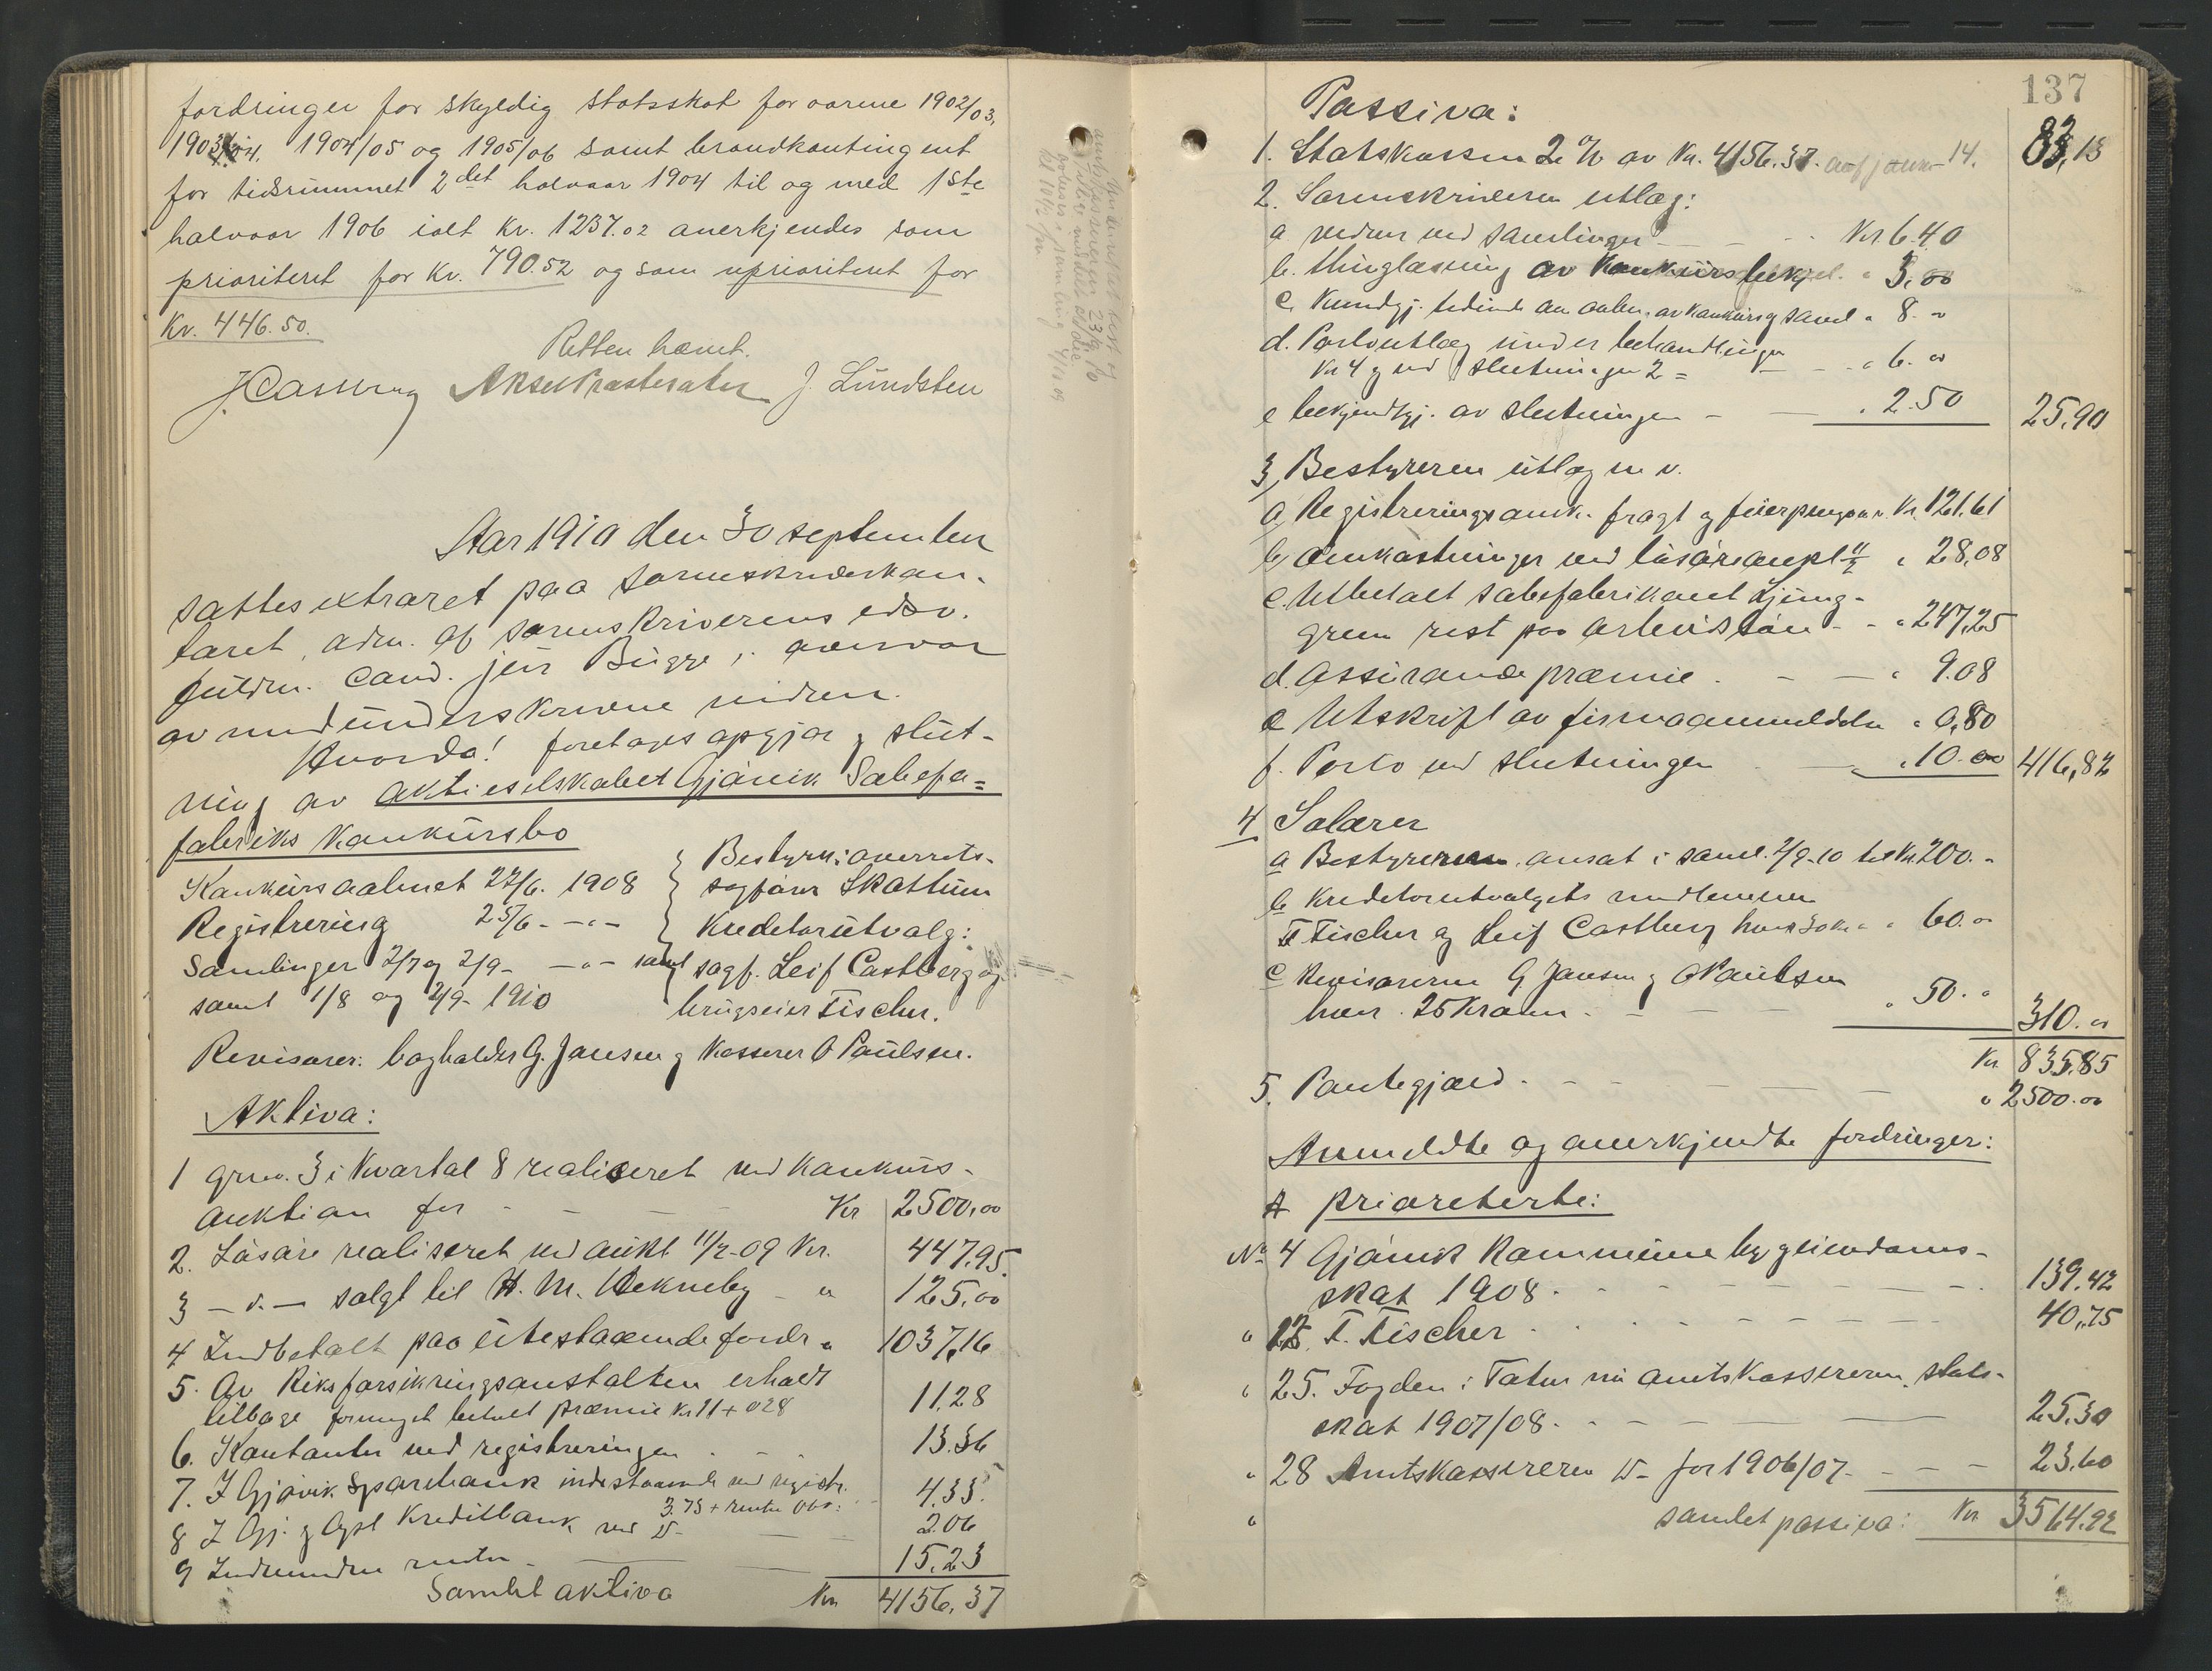 fordringer for skyldig statsskat for aarene 1902/03,
1903/04, 1904/05 og 1905/06 samt brandkontingent
for tidsrummet 2det halvaar 1904 til og med 1ste
halvaar 1906 ialt kr. 1237.02 anerkjendes som
prioriteret for kr. 790.52 og som uprioriteret for
Kr. 446.50.
Retten hævet.
J Castberg J. Lundsten
Aar 1910 den 30 september
sattes extraret paa sorenskriverkon-
toret, adm. af sorenskriverens edsv.
fuldm. cand. jur Bugge i overvær
av medunderskrevne vidner.
Hvorda! foretoges opgjør og slut-
ning av aktieselskabet Gjøvik Sæbefa=
fabriks konkursbo
Konkurs aabnet 22/6. 1908
Registrering 25/6 - -"-
Samlinger 2/7 og 2/9 - -"- samt
samt 1/8 og 2/9 - 1910
Bestyrer: overrets-
sagfører Skattum
Kreditorutvalg:
sagf. Leif Castberg og
brugseier Fischer.
Revisorer: bogholder G. Jansen og kasserer O Paulsen.
Aktiva:
1 grno. 3 i Kvartal 8 realiseret ved konkurs-
auktion for - - - Kr 2500,00
2. Løsøre realiseret ved aukt 11/2-09 Kr. 447,95
3 - d. - solgt til H. M. Vekneby - " 125,00
4 Indbetalt paa utestaaende fordr " 1037,16
5. Av Riksforsikringsanstalten erholdt
tilbage formeget betalt præmie Kr 11 + 028 11,28
6. Kontanter ved registreringen - - 13.36
7. I Gjøvik Sparebank indestaaende ved registr.
3.75 + rente 4.33
8 I Gj. og Opl Kreditbank ved d- - 2.06
9 Indvundne renter - 15,23
Samlet aktiva Kr. 4156,37
137
Passiva:
1. Statskassen 2 % av Kr. 4156.37. 83,13
2. Sorenskriveren utlæg:
a vidner ved samlinger - - - Kr 6.40
b. thinglæsning av konkursbekj. " 3,00
c. Kundgj. tidende om aabn. av konkurs og saml " 8. -
d. Portoutlæg under behandlingen
Kr 4 og ved slutningen 2 = - - " 6. 00
e bekjendtgj. av slutningen - - " 2.50 25,90
3, Bestyreren utlæg m v.
a, Registreringsomk. fragt og feierpenge m.v. Kr. 121,61
b, omkostninger ved løsøreaukt 11/2 " 28,08
c. Utbetalt sæbefabrikant Ljung-
green rest paa arbeidsløn - - " 247,25
d. Assurance præmie - - - " 9.08
e Utskrift av firmaanmeldelse " 0,80
f. Porto ved slutningen - " 10.00 416,82
4 Salærer
a Bestyreren, ansat i saml. 2/9-10 til Kr. 200. -
b Kreditorutvalgets medlemmer
F Fischer og Leif Castberg hver 30 kr " 60. 00
c Revisorerne G. Jansen og O Paulsen
hver 25 Kroner - - - " 50. " 310. 00
Kr 835,85
5. Pantegjæld - - - " 2500.00
Anmeldte og anerkjendte fordringer:
A prioriterte:
No. 4 Gjøvik kommune by eiendoms-
skat 1908 - - - 139.42
" F. Fischer - - - 40,75
" 25. Fogden i Toten nu amtskassereren, stats-
skat 1907/08 - - - 25.30
" 28 Amtskassereren d- for 1906/07 - - - 23.60
" samlet passiva: Kr 3564.92